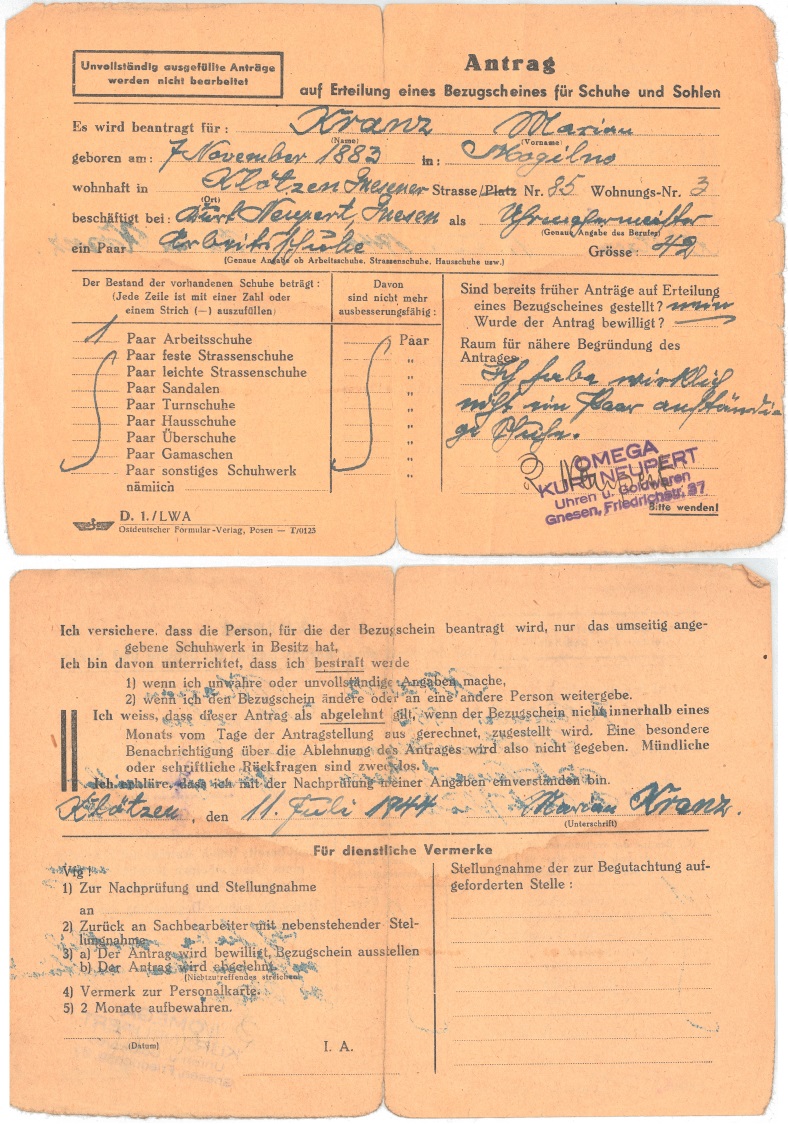 Unvollständig ausgefüllte Anträge
werden nicht bearbeitet
Antrag
auf Erteilung eines Bezugscheines für Schuhe und Sohlen
Es wird beantragt für: Kranz Marian
(Name) (Vorname)
geboren am: 7 November 1883 in: Mogilno
wohnhaft in Klötzen Gnesener Strasse/Platz Nr. 85 Wohnungs-Nr. 3
(Ort)
beschäftigt bei: Kurt Neupert, Gnesen als Uhrmachermeister
(Genaue Angabe des Berufes)
ein Paar Arbeitsschuhe Grösse: 42
(Genaue Angabe ob Arbeitsschuhe, Strassenschuhe, Hausschuhe usw.)
Der Bestand der vorhandenen Schuhe beträgt:
(Jede Zeile ist mit einer Zahl oder
einem Strich (—) auszufüllen)
Davon
sind nicht mehr
ausbesserungsfähig:
1 Paar Arbeitsschuhe Paar
Paar feste Strassenschuhe "
Paar leichte Strassenschuhe "
Paar Sandalen "
Paar Turnschuhe "
Paar Hausschuhe "
Paar Überschuhe "
Paar Gamaschen "
Paar sonstiges Schuhwerk
nämlich
Sind bereits früher Anträge auf Erteilung
eines Bezugscheines gestellt? nein
Wurde der Antrag bewilligt? —
Raum für nähere Begründung des
Antrages
Ich habe wirklich
nicht ein Paar anständi-
ge Schuhe.
OMEGA
KURT NEUPERT
Uhren u. Goldwaren
Gnesen, Friedrichstr. 37
Bitte wenden!
D. 1./LWA
Ostdeutscher Formular-Verlag, Posen — T/0125
Ich versichere, dass die Person, für die der Bezugschein beantragt wird, nur das umseitig ange-
gebene Schuhwerk in Besitz hat,
Ich bin davon unterrichtet, dass ich bestraft werde
1) wenn ich unwahre oder unvollständige Angaben mache,
2) wenn ich den Bezugschein ändere oder an eine andere Person weitergebe.
Ich weiss, dass dieser Antrag als abgelehnt gilt, wenn der Bezugschein nicht innerhalb eines
Monats vom Tage der Antragstellung aus gerechnet, zugestellt wird. Eine besondere
Benachrichtigung über die Ablehnung des Antrages wird also nicht gegeben. Mündliche
oder schriftliche Rückfragen sind zwecklos.
Ich erkläre, dass ich mit der Nachprüfung meiner Angaben einverstanden bin.
Klötzen, den 11. Juli 1944 Marian Kranz.
(Unterschrift)
Für dienstliche Vermerke
Vfg!
1) Zur Nachprüfung und Stellungnahme
an
2) Zurück an Sachbearbeiter mit nebenstehender Stel-
lungnahme
3) a) Der Antrag wird bewilligt, Bezugschein ausstellen
b) Der Antrag wird abgelehnt.
(Nichtzutreffendes streichen)
4) Vermerk zur Personalkarte.
5) 2 Monate aufbewahren.
(Datum) I. A.
Stellungnahme der zur Begutachtung auf-
geforderten Stelle: